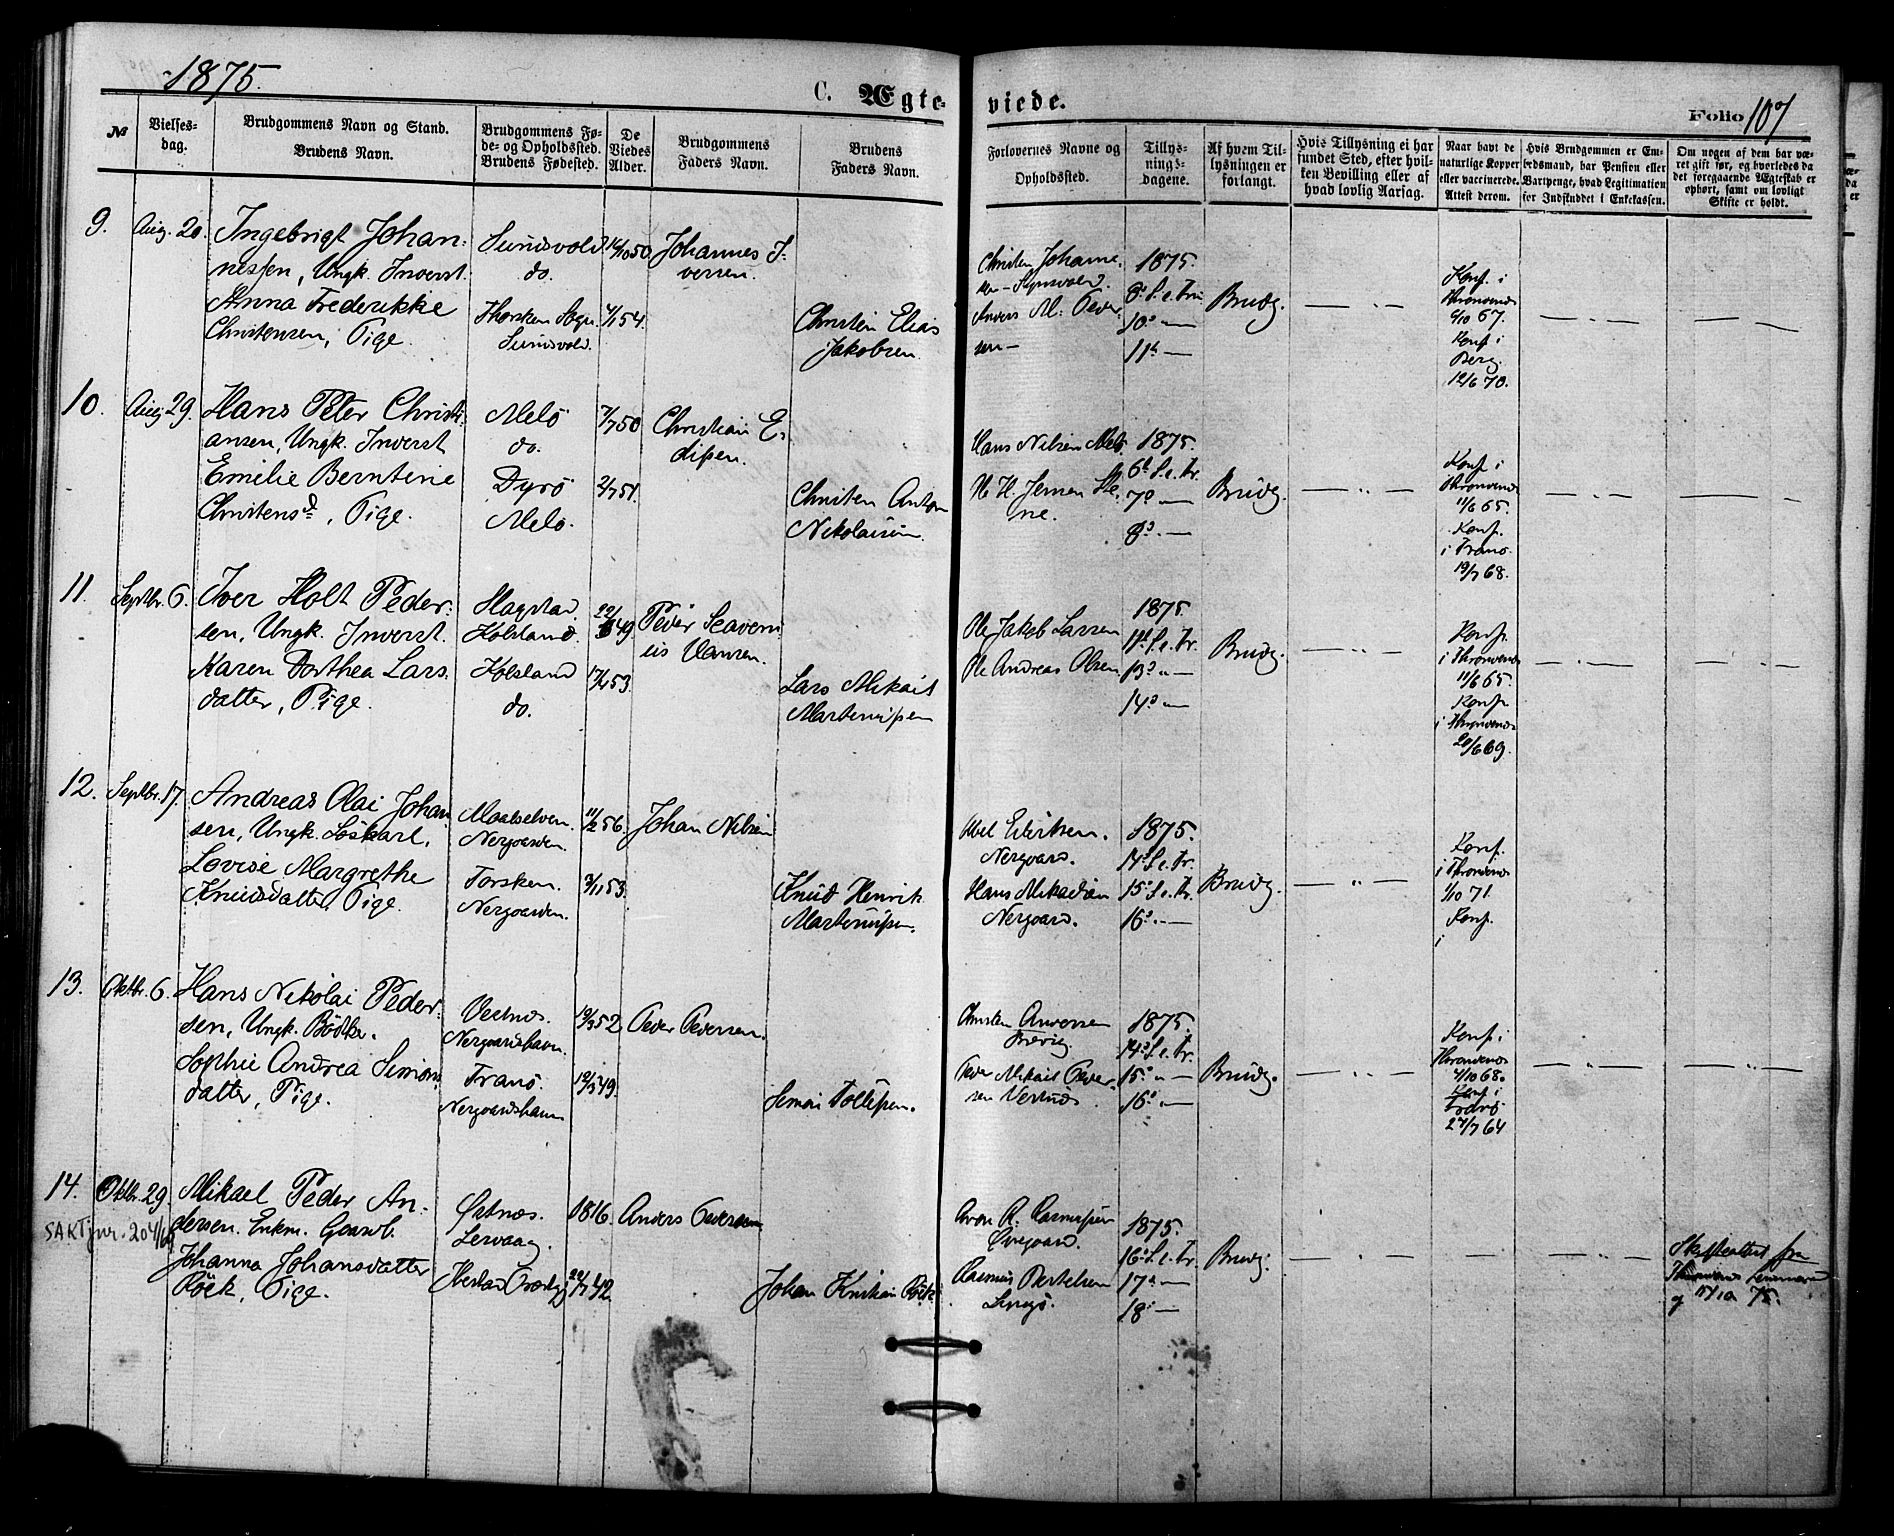 1875.
C. Ægteviede.
Folio 107
№
Vielsesdag.
Brudgommens Navn og Stand.
Brudens Navn.
Brudgommens Føde- og Opholdssted.
Brudens Fødested.
De Viedes Alder.
Brudgommens Faders Navn.
Brudens Faders Navn.
Forlovernes Navne og Opholdssted.
Tillysningsdagene.
Af hvem Tillysningen er forlangt.
Hvis Tillysning ei har fundet Sted, efter hvilken Bevilling eller af hvad lovlig Aarsag.
Naar havt de naturlige Kopper eller vaccinerede. Attest derom.
Hvis Brudgommen er Embedsmand, har Pension eller Vartpenge, hvad Legitimation for Indskuddet i Enkekassen.
Om nogen af dem har været gift før, og hvorledes da det foregaaende Ægteskab er ophørt, samt om lovligt Skifte er holdt.
9. Aug. 20. Ingebrigt Johan-
nessen, Ungk. Inderst.
Anna Frederikke
Christensen, Pige.
Sundsvold
do.
Thorsken Sogn.
Sundsvold.
16/10 50.
4/1 54.
Johannes I-
versen.
Christen Elias
Jakobsen
Christen Johanne
Anders M. Peder-
sen —
1875.
8d S. e. Tri
10d —
11d —
Brudg.
Konf. i
Throndenes
9/10 67.
Konf. i
Berg.
12/6 70.
10. Aug. 29. Hans Peter Christi-
ansen, Ungk. Inderst
Emilie Berntine
Christensd., Pige.
Melö
do.
Dyrö
Melö.
7/7 50
2/7 51.
Christian E-
Christen Anton
Nikolaisen.
Hans Nilsen Melö.
H. H. Jensen Ste-
ne.
1875.
6d S. e. Tr.
7d —
8d —
Brudg.
Konf. i
Throndenes
11/6 65.
Konf.
i Tranö.
19/7 68.
11. Septbr. 6. Iver Holt Peder-
sen, Ungk. Inderst.
Karen Dorthea Lars-
datter, Pige.
Hagstad
Kolsland.
Kolsland
do.
49
17/4 53.
Peder Severin
Hansen.
Lars Mikail
Martenussen
Ole Jakob Larsen
Ole Andreas Olsen
1875.
11d S. e. Tr.
13d —
14d —
Brudg.
Konf.
i Throndenes
11/6 65.
Konf.
i Throndenes
20/6 69.
12. Septbr. 17. Andreas Olai Johan
sen, Ungk. Löskarl.
Lovise Margrethe
Knudsdatter, Pige.
Maalselven.
Nergaarden.
Torsken.
Nergaarden.
11/2 56.
3/11 53.
Johan Nilsen
Knud Henrik
Martenussen.
Abel Eilertsen.
Nergaard.
Hans Mikal
Nergaard.
1875.
14d S. e. Tr.
15d S. e. Tr.
16d —
Brudg.
Konf.
i Throndenes
1/10 71.
Konf.
i
13. Oktbr. 6. Hans Nikolai Peder-
sen, Ungk. Bödker.
Sophie Andrea Simons
datter, Pige.
Vestnes.
Nergaardshavn.
Tranö.
Nergaardshavn
19/3 52
19/3 49.
Peder Pedersen.
Simon Tollefsen.
Christen Andersen
Peder Mikail Peder-
sen Vestnes
1875.
14d S. e. Tr.
15d —
16d —
Brudg.
Konf. i
Throndenes
4/10 68.
Konf. i
Tranö
27/7 64
14. Oktbr. 29. Mikael Peder An-
dersen. Enkm. Gaardb.
Johanna Johansdatter
Röek, Pige.
SAKTjnr. 204/64
Östnes.
Lervaag.
1816.
42.
Anders Pedersen
Johan Kristian Röek
Aron R. Rasmussen
Övregaard.
Rasmus Bertelsen
1875.
16d S. e. Tr.
17d —
18d —
Brudg.
Skifteattest fra
75.